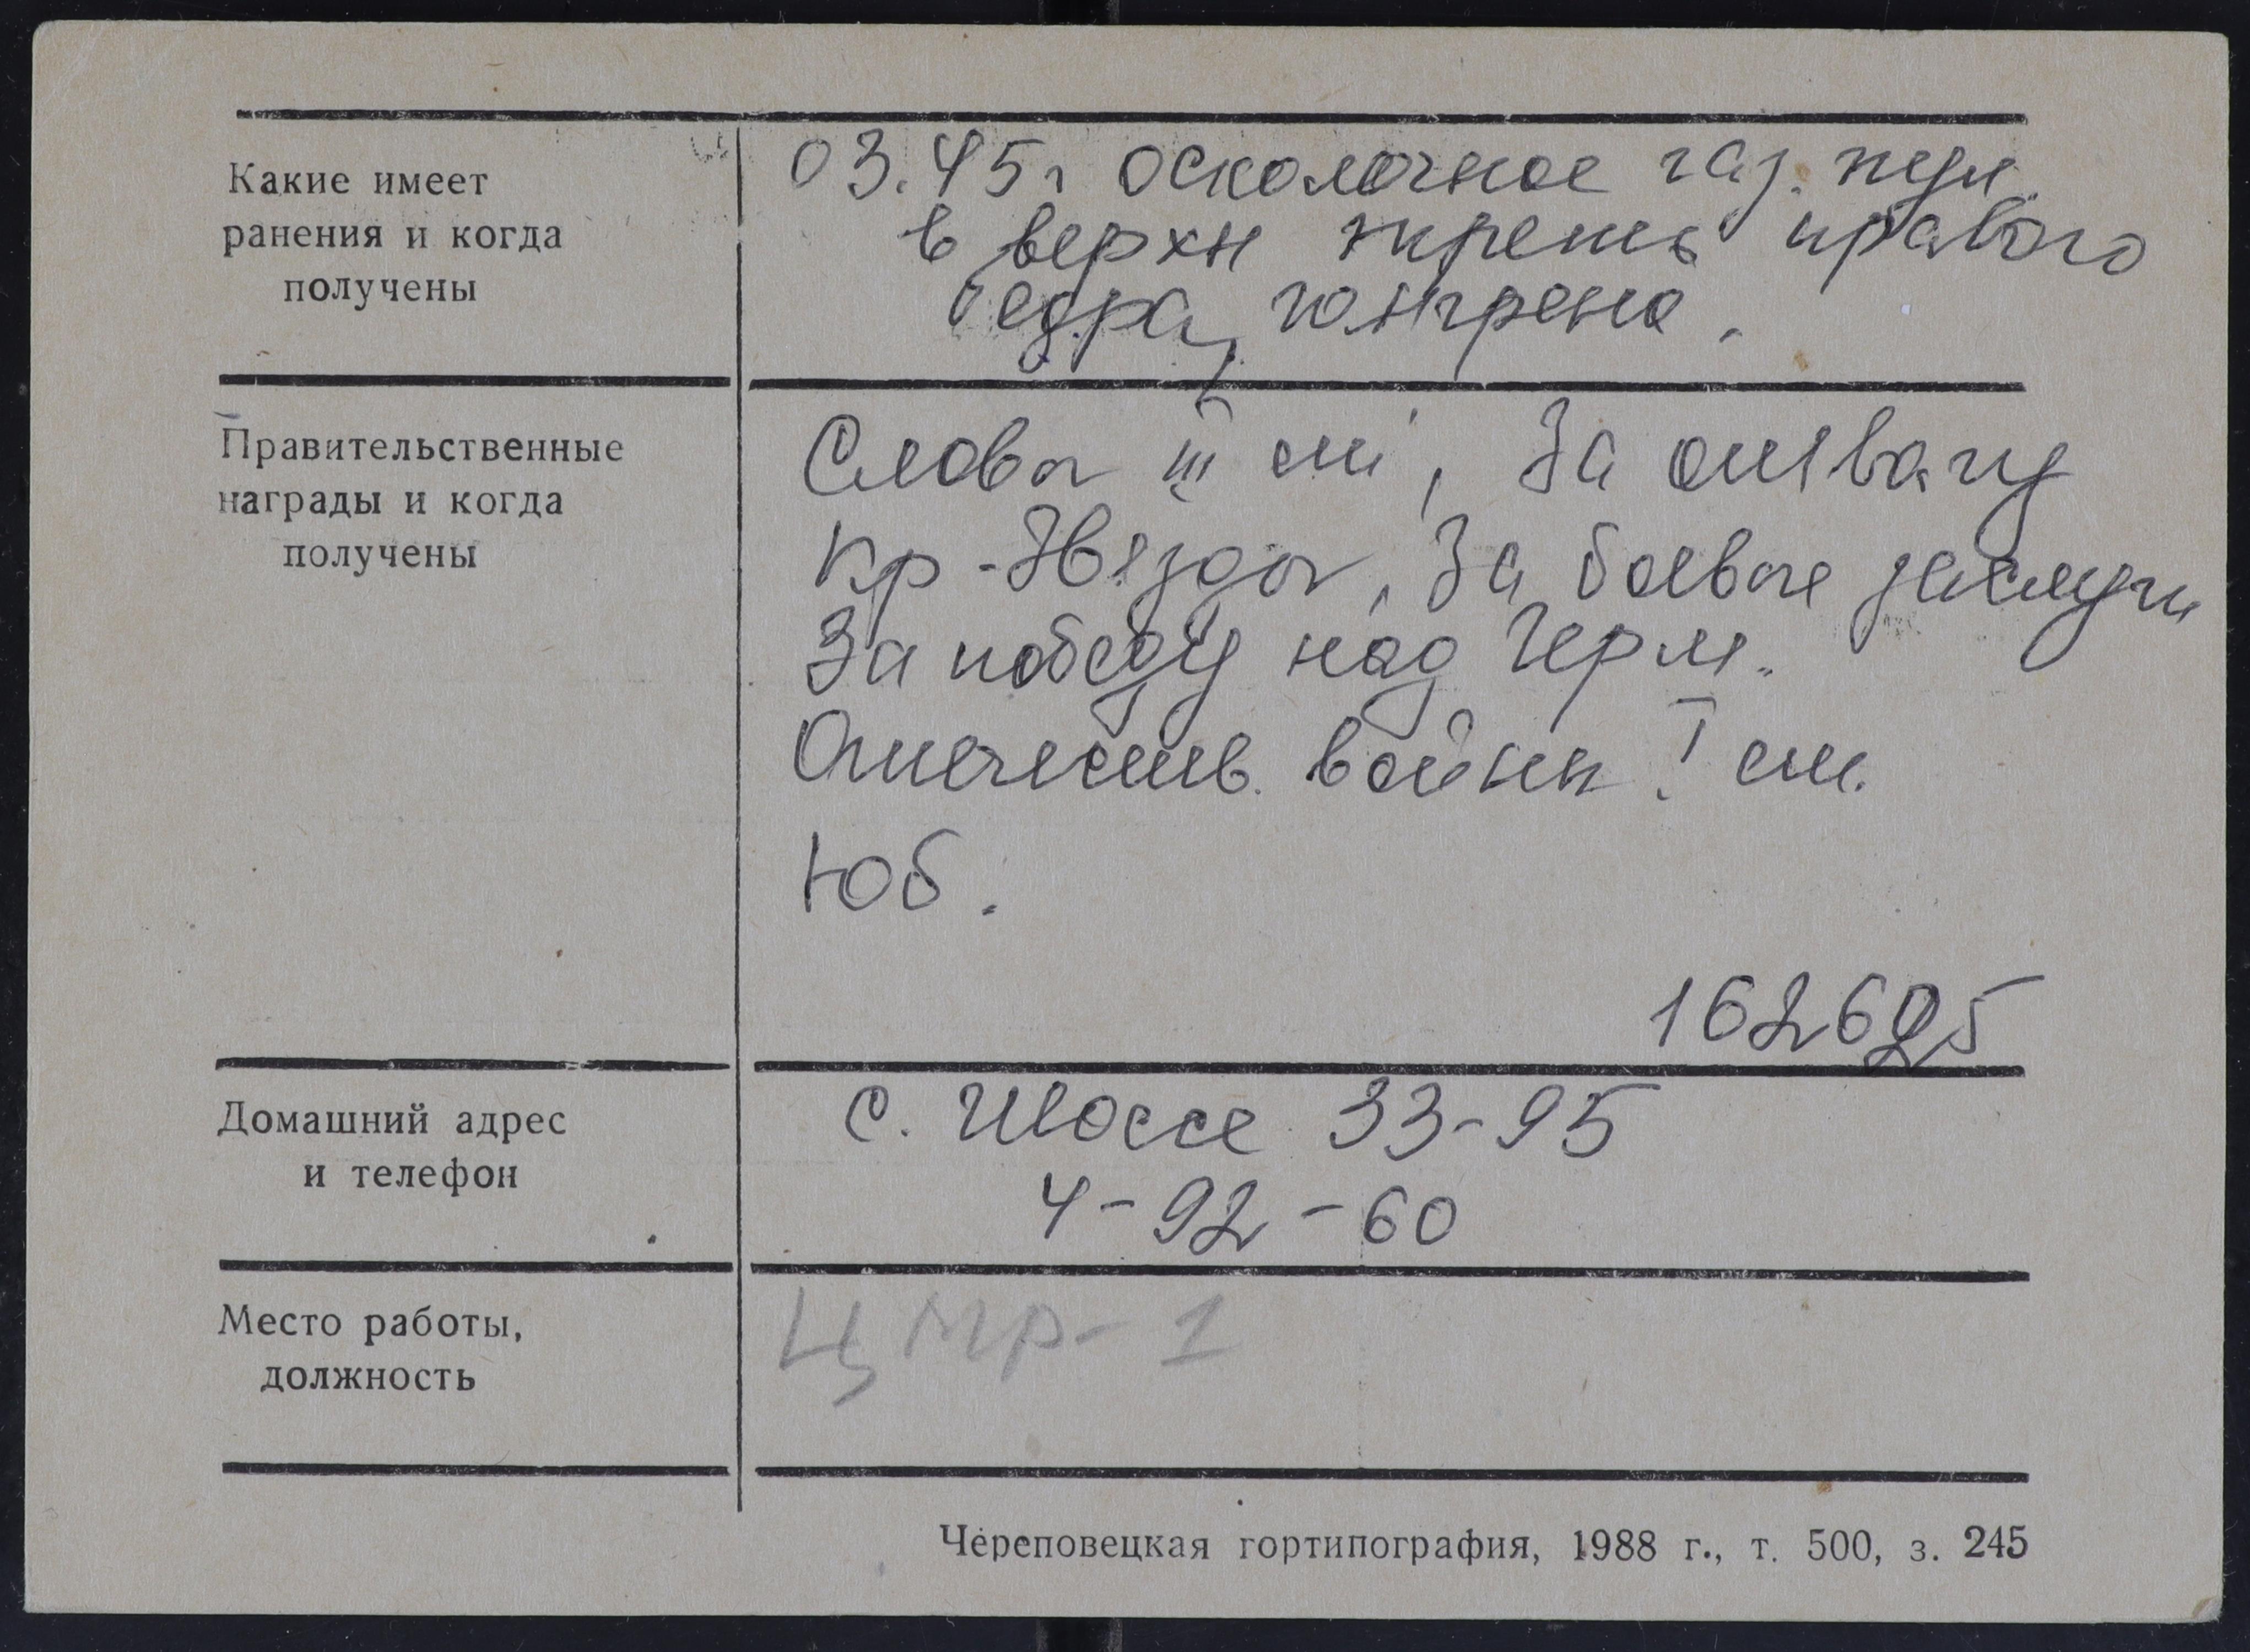 Какие имеет
ранения и когда
получены
03.45г осколочное газ.
в верхн треть правого
бедра, гангрена.
Правительственные
награды и когда
получены
Славы III ст, За отвагу
Кр-Звезды, За боевые заслуги
За победу над Герм.
Отечеств. войны I ст.
Юб.
Домашний адрес
и телефон
с. Шоссе 33-95
4-92-60
Место работы,
должность
ЦМР-1
Череповецкая гортипография, 1988 г., т. 500, з. 245